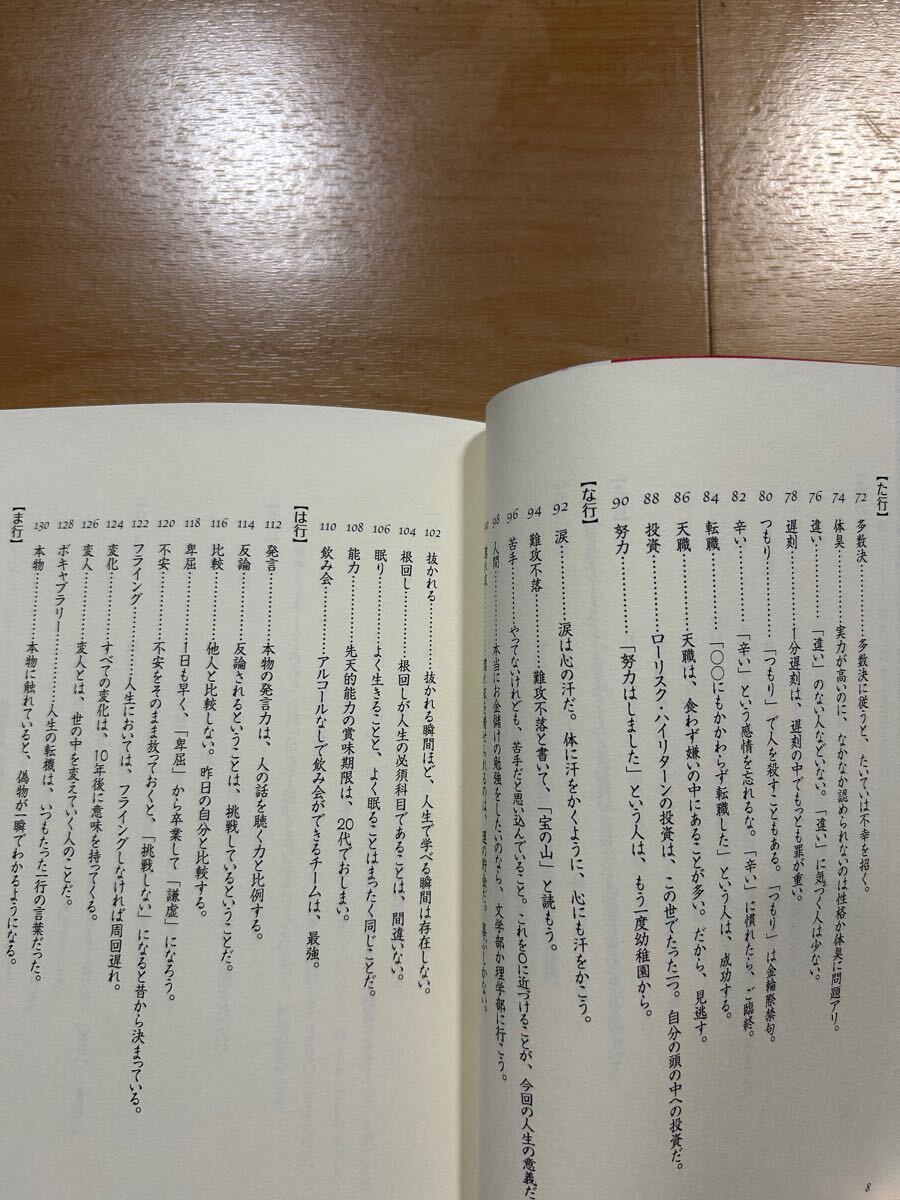 【た行】
72 多数決……… 多数決に従うと、たいていは不幸を招く。
74 体臭……… 実力が高いのに、なかなか認められないのは性格か体臭に問題アリ。
76 違い……… 「違い」のない人などいない。「違い」に気づく人は少ない。
78 遅刻……… 1分遅刻は、遅刻の中でもっとも罪が重い。
80 つもり……… 「つもり」で人を殺すこともある。「つもり」は金輪際禁句。
82 辛い……… 「辛い」という感情を忘れるな。「辛い」に慣れたら、ご臨終。
84 転職……… 「〇〇にもかかわらず転職した」という人は、成功する。
86 天職……… 天職は、食わず嫌いの中にあることが多い。だから、見逃す。
88 投資……… ローリスク・ハイリターンの投資は、この世でたった二つ。自分の頭の中への投資だ。
90 努力……… 「努力はしました」という人は、もう一度幼稚園から。
【な行】
92 涙……… 涙は心の汗だ。体に汗をかくように、心にも汗をかこう。
94 難攻不落……… 難攻不落と書いて、「宝の山」と読もう。
96 苦手……… やってないけれども、苦手だと思い込んでいること。これを〇に近づけることが、今回の人生の意義だ
98 人間……… 本当にお金儲けの勉強をしたいのなら、文学部か理学部に行こう。
102 抜かれる……… 抜かれる瞬間ほど、人生で学べる瞬間は存在しない。
104 根回し……… 根回しが人生の必須科目であることは、間違いない。
106 眠り……… よく生きることと、よく眠ることはまったく同じことだ。
108 能力……… 先天的能力の賞味期限は、20代でおしまい。
110 飲み会……… アルコールなしで飲み会ができるチームは、最強。
【は行】
112 発言……… 本物の発言力は、人の話を聴く力と比例する。
114 反論……… 反論されるということは、挑戦しているということだ。
116 比較……… 他人と比較しない。昨日の自分と比較する。
118 卑屈……… 1日も早く、「卑屈」から卒業して「謙虚」になろう。
120 不安……… 不安をそのまま放っておくと、「挑戦しない」になると昔から決まっている。
122 フライング……… 人生においては、フライングしなければ周回遅れ。
124 変化……… すべての変化は、10年後に意味を持ってくる。
126 変人……… 変人とは、世の中を変えていく人のことだ。
128 ボキャブラリー……… 人生の転機は、いつもたった一行の言葉だった。
130 本物……… 本物に触れていると、偽物が一瞬でわかるようになる。
【ま行】
8